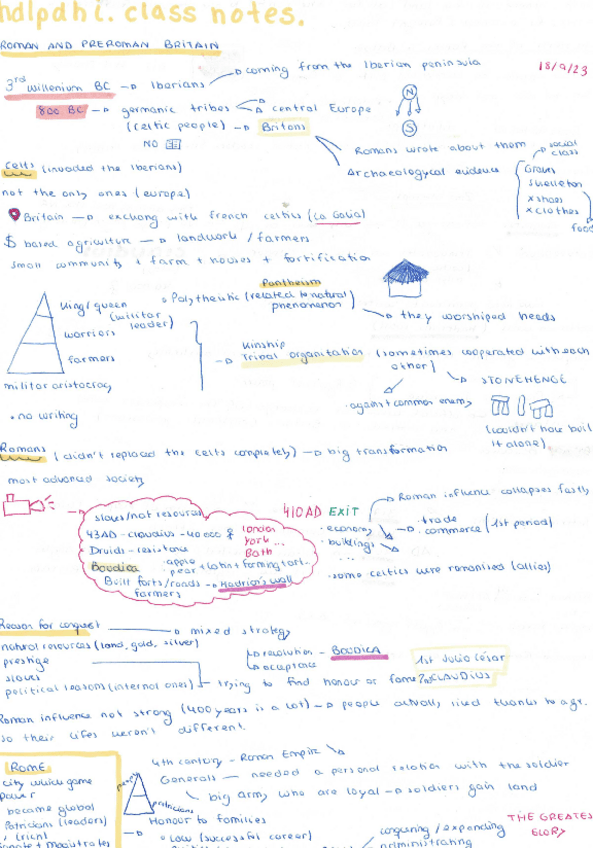 hdlpdhi. class notes.
ROMAN AND PREROMAN BRITAIN
18/9/23
3rd willenium BC → Iberians → coming from the Iberian peninsula
800 BC → germanic tribes → central Europe
(celtic people) → Britons
N
S
NO
Romans wrote about them
Archaeologycal evidence
social class
Graves
skeleton
x shoes
x clothes
food
Celts (invaded the Iberians)
not the only ones (europe)
Britain → exchang with french celtics (La Galia)
$ based agriculture → landwork / farmers
small community + farm + houses + fortification
Pantheism
King/queen
(militar leader)
worriors
farmers
Polytheutic (related to natural phenomenon)
they worshiped heads
Kinship
Tribal organitation (sometimes cooperated with each other)
militar aristocracy
against common enemy
STONEHENGE
(wouldn't have built it alone)
• no writing
Romans (didn't replaced the celts completely) → big transformation
most advanced society
slaves/not resources
43AD - claudius - 40 000
London
York ...
Bath
Druids - resistance
Boudica
apple
pear + latin + forming tort..
Built forts/roads → Hadrian's wall
farmers
410AD EXIT
Roman influence collapses fastly
· economy
· buildings
...
→ trade
commerce (1st period)
· some celtics were romanised (allies)
Reason for conquest → mixed strategy
natural resources (land, gold, silver)
prestige
slaves
political reasons (internal ones)
revolution - BOUDICA
aceptance
1st Julio César
2nd CLAUDIUS
trying to find honour or fame
Roman influence not strong (400 years is a lot) → people actually lived thanks to agr.
so their lifes weren't different.
ROME
city which game
power
became global
Patricians (leaders)
(rich)
senate + magistrates
4th century - Roman Empire
Generals — needed a personal relation with the soldier
big army who are loyal → soldiers gain land
patricians
Honour to families
• Law (successful career)
conquering / expanding
administrating
THE GREATES
GLORY